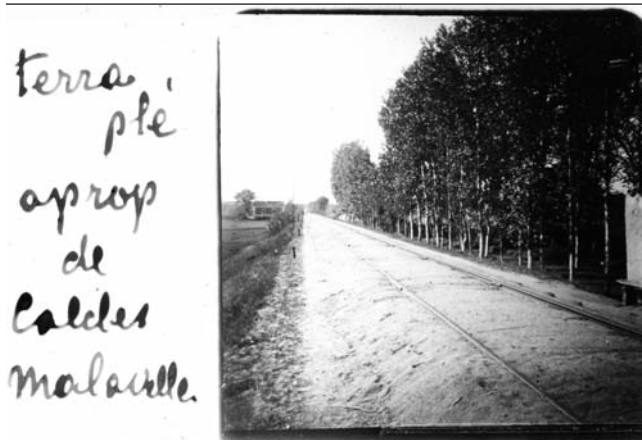 terra,
plé
aprop
de
Caldes
Malavella.